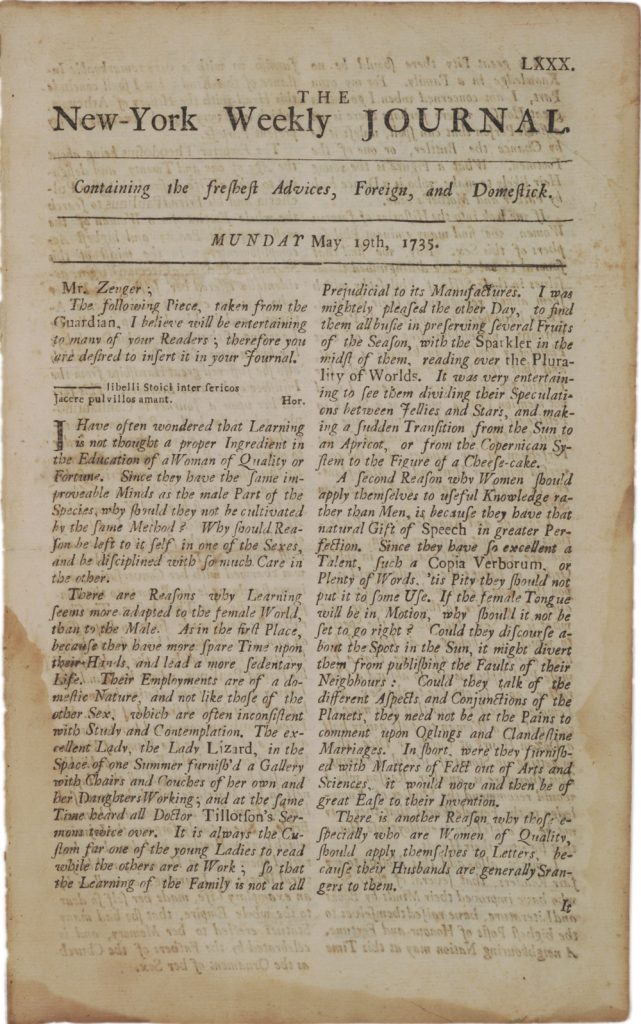 LXXX.
THE
New-York Weekly JOURNAL.
Containing the freſheſt Advices, Foreign, and Domeſtick.
MUNDAY May 19th, 1735.
Mr. Zenger;
The following Piece, taken from the
Guardian, I believe will be entertaining
to many of your Readers; therefore you
are deſired to inſert it in your Journal.
libelli Stoici inter ſericos
Jacere pulvillos amant. Hor.
I Have often wondered that Learning
is not thought a proper Ingredient in
the Education of a Woman of Quality or
Fortune. Since they have the ſame im-
proveable Minds as the male Part of the
Species, why ſhould they not be cultivated
by the ſame Method? Why ſhould Rea-
ſon be left to it ſelf in one of the Sexes,
and be diſciplined with ſo much Care in
the other.
There are Reaſons why Learning
ſeems more adapted to the female World,
than to the Male. As in the firſt Place,
becauſe they have more ſpare Time upon
their Hands, and lead a more ſedentary
Life. Their Employments are of a do-
meſtic Nature, and not like thoſe of the
other Sex, which are often inconſiſtent
with Study and Contemplation. The ex-
cellent Lady, the Lady Lizard, in the
Space of one Summer furniſh'd a Gallery
with Chairs and Couches of her own and
her Daughters Working; and at the ſame
Time heard all Doctor Tillotſon's Ser-
mons twice over. It is always the Cu-
ſtom for one of the young Ladies to read
while the others are at Work; ſo that
the Learning of the Family is not at all
Prejudicial to its Manufactures. I was
mightely pleaſed the other Day, to find
them all buſie in preſerving ſeveral Fruits
of the Seaſon, with the Sparkler in the
midſt of them, reading over the Plura-
lity of Worlds. It was very entertain-
ing to ſee them dividing their Speculati-
ons between Jellies and Stars, and mak-
ing a ſudden Tranſition from the Sun to
an Apricot, or from the Copernican Sy-
ſtem to the Figure of a Cheeſe-cake.
A ſecond Reaſon why Women ſhould
apply themſelves to uſeful Knowledge ra-
ther than Men, is becauſe they have that
natural Gift of Speech in greater Per-
fection. Since they have ſo excellent a
Talent, ſuch a Copia Verborum, or
Plenty of Words, 'tis Pity they ſhould not
put it to ſome Uſe. If the female Tongue
will be in Motion, why ſhould it not be
ſet to go right? Could they diſcourſe a-
bout the Spots in the Sun, it might divert
them from publiſhing the Faults of their
Neighbours: Could they talk of the
different Aſpects and Conjunctions of the
Planets, they need not be at the Pains to
comment upon Oglings and Clandeſtine
Marriages. In ſhort, were they furniſh-
ed with Matters of Fact out of Arts and
Sciences, it would now and then be of
great Eaſe to their Invention.
There is another Reaſon why thoſe e-
ſpecially who are Women of Quality,
ſhould apply themſelves to Letters, be-
cauſe their Husbands are generally Sran-
gers to them.
It